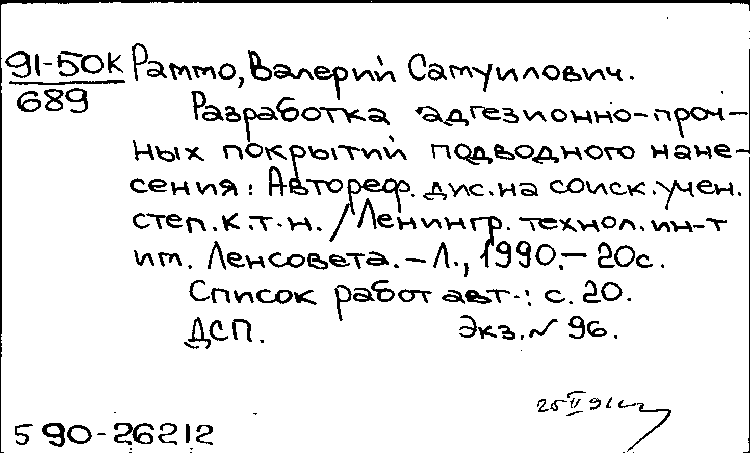 91-50К Раммо, Валерий Самуилович.
689
Разработка адгезионно-проч-
ных покрытий подводного нане-
сения: Автореф. дис. на соиск. учен.
степ. к.т.н. / Ленингр. технол. ин-т
им. Ленсовета. – Л., 1990. – 20с.
Список работ авт.: с. 20.
ДСП. Экз. N 96.
25 II 91
5 90-26212